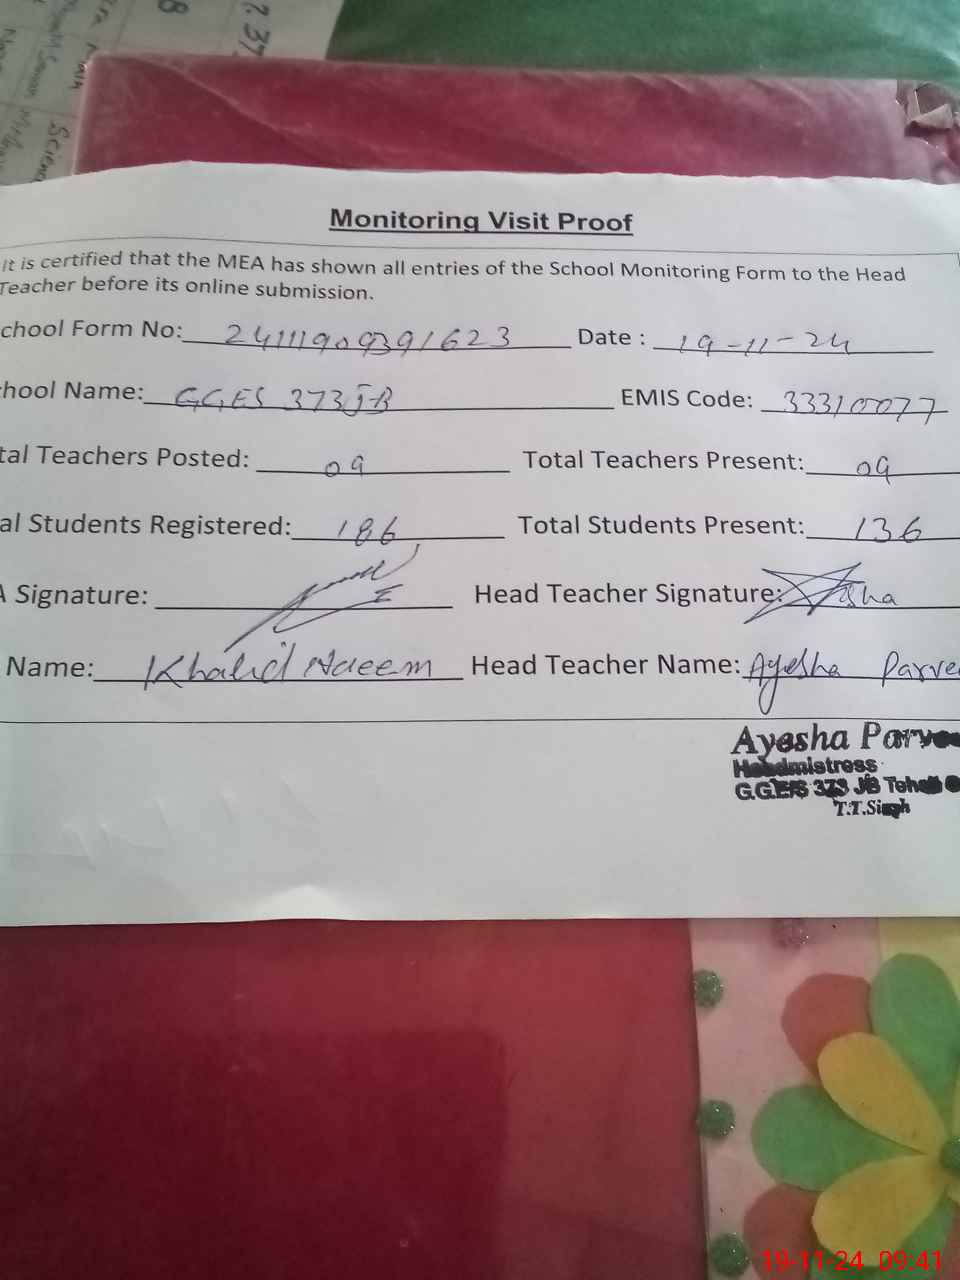 Monitoring Visit Proof
It is certified that the MEA has shown all entries of the School Monitoring Form to the Head
Teacher before its online submission.
chool Form No: 24111909391623 Date : 19-11-24
hool Name: GGES 373 JB EMIS Code: 33310077
tal Teachers Posted: 09 Total Teachers Present: 09
al Students Registered: 186 Total Students Present: 136
A Signature: Head Teacher Signature: Aisha
Name: Khalid Naeem Head Teacher Name: Ayesha Parve
Ayesha Parvee
Headmistress
G.GE/S 373 JB Teh
T.T.Singh
19-11-24 09:41